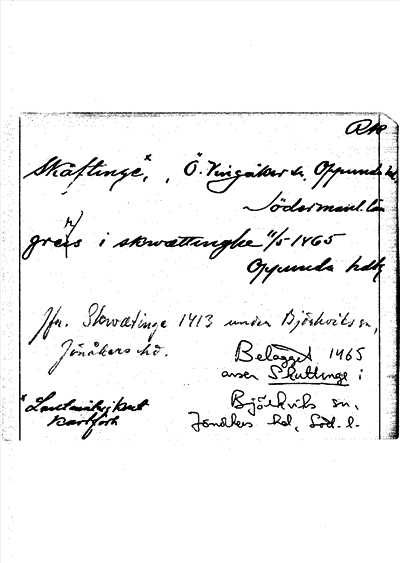 Skäftinge,* Ö. Vingåker sn, Oppunda hd,
Södermanl. län
greis i skwættinghe 11/5 1465
Oppunda hdtg
Jfr. Skwætinge 1413 under Björkviks sn,
Jönåkers hd.
Belägget 1465
avser Skuttinge i
Björkviks sn,
Jönåkers hd, Söd. l.